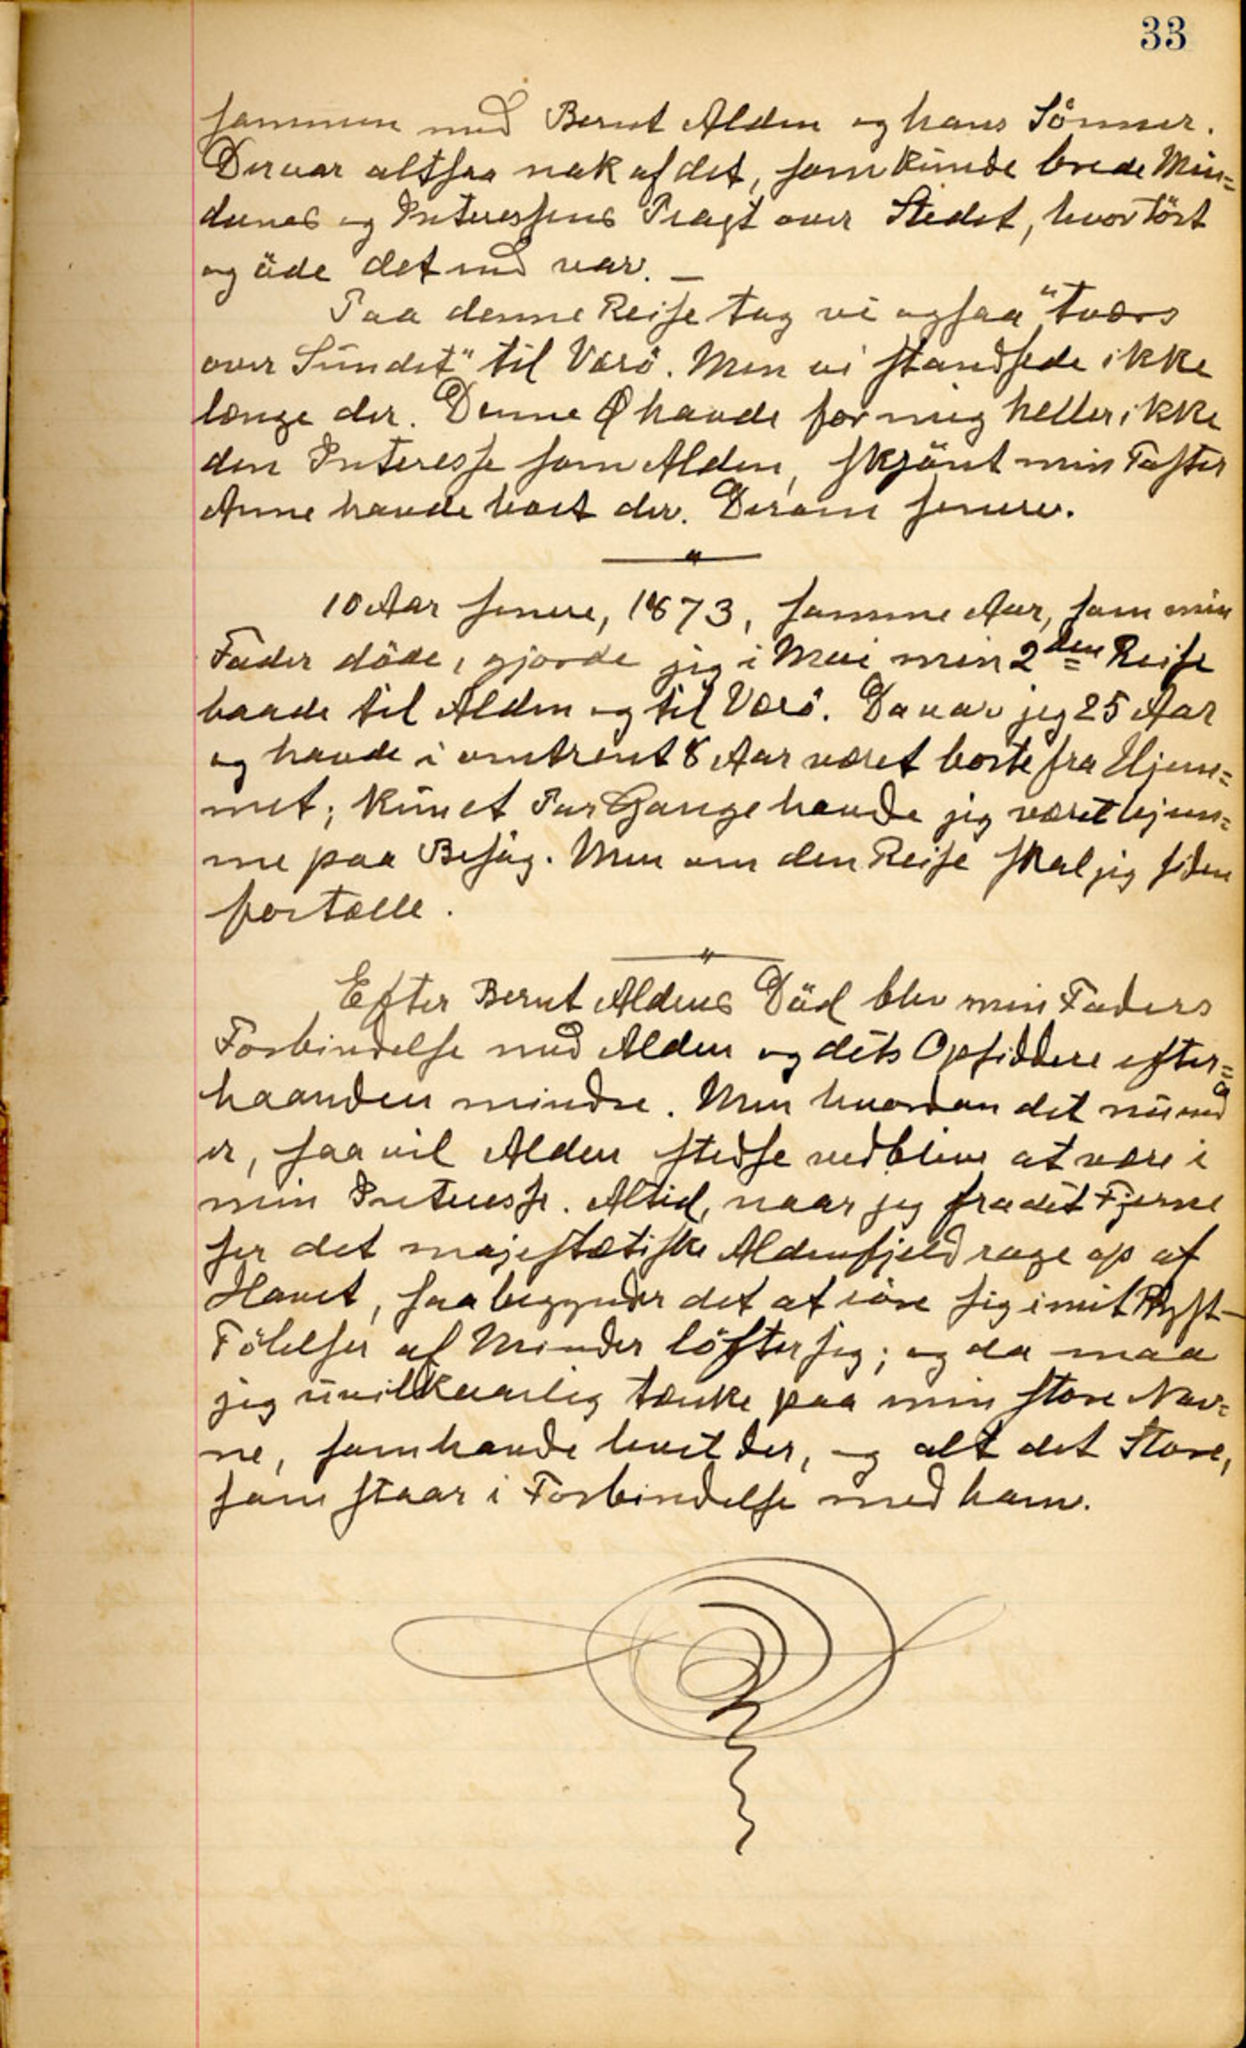 33
sammen med Bernt Alden og hans Sönner.
Der var altsaa nok af det, som kunde brede Min=
dernes og Interessens Pragt over Stedet, hvor tört
og öde det end var. —
Paa denne Reise tog vi ogsaa "tværs
over Sundet" til Værö. Men vi standsede ikke
længe der. Denne Ø havde for mig heller ikke
den Interesse som Alden, skjönt min Faster
Anne havde boet der. Derom senere.
10 Aar senere, 1873, samme Aar, som min
Fader döde, gjorde jeg i Mai min 2den Reise
baade til Alden og til Værö. Da var jeg 25 Aar
og havde i omtrent 8 Aar været borte fra Hjem=
met; kun et Par Gange havde jeg været hjem=
me paa Besög. Men om den Reise skal jeg siden
fortælle.
Efter Bernt Aldens Död blev min Faders
Forbindelse med Alden og dets Opsiddere efter=
haanden mindre. Men hvordan det nu end
er, saa vil Alden stedse vedblive at være i
min Interesse. Altid, naar jeg fra det Fjerne
ser det majestætiske Aldenfjeld rage op af
Havet, saa begynder det at röre sig i mit Bryst —
Fölelser af Minder löfter sig; og da maa
jeg uvilkaarlig tænke paa min store Nav=
ne, som havde boet der, og alt det Store,
som staar i Forbindelse med ham.